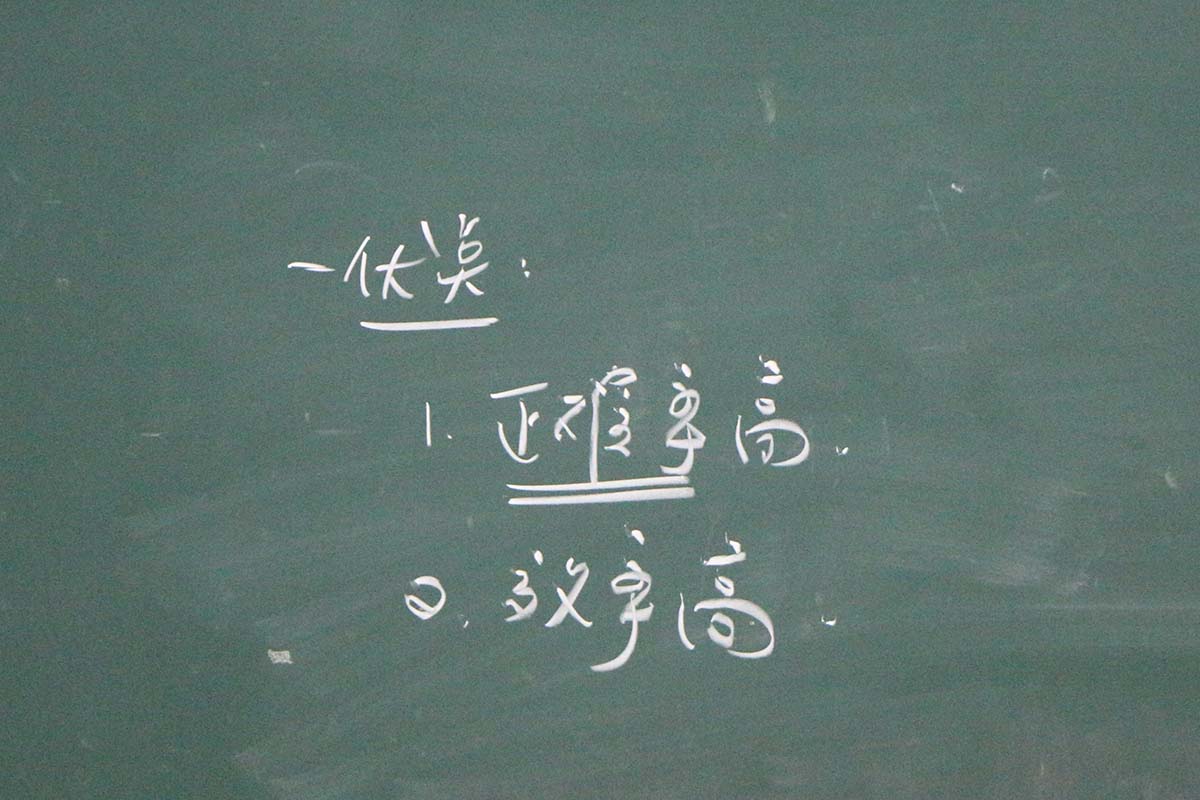 一优点:
1. 正确率高.
2. 效率高.